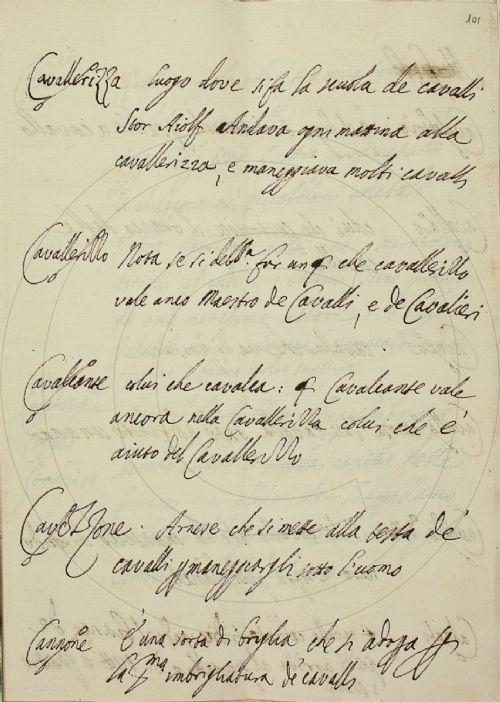 101
Cavallerizza luogo dove si fa la scuola de cavalli
Stor Aiolf. Andava ogni mattina alla
cavallerizza, e maneggiava molti cavalli
Cavallerizzo Nota se si debba. far un che cavallerizzo
vale anco Maestro de Cavalli, e de Cavalieri
Cavalcante colui che cavalca: Cavalcante vale
ancora nella Cavallerizza colui che è
aiuto del Cavallerizzo
Cavezzone. Arnese che si mette alla testa de'
cavalli p maneggiargli sotto l'uomo
Cannone È una sorta di briglia che si adopa p
la pma imbrigliadura de' cavalli